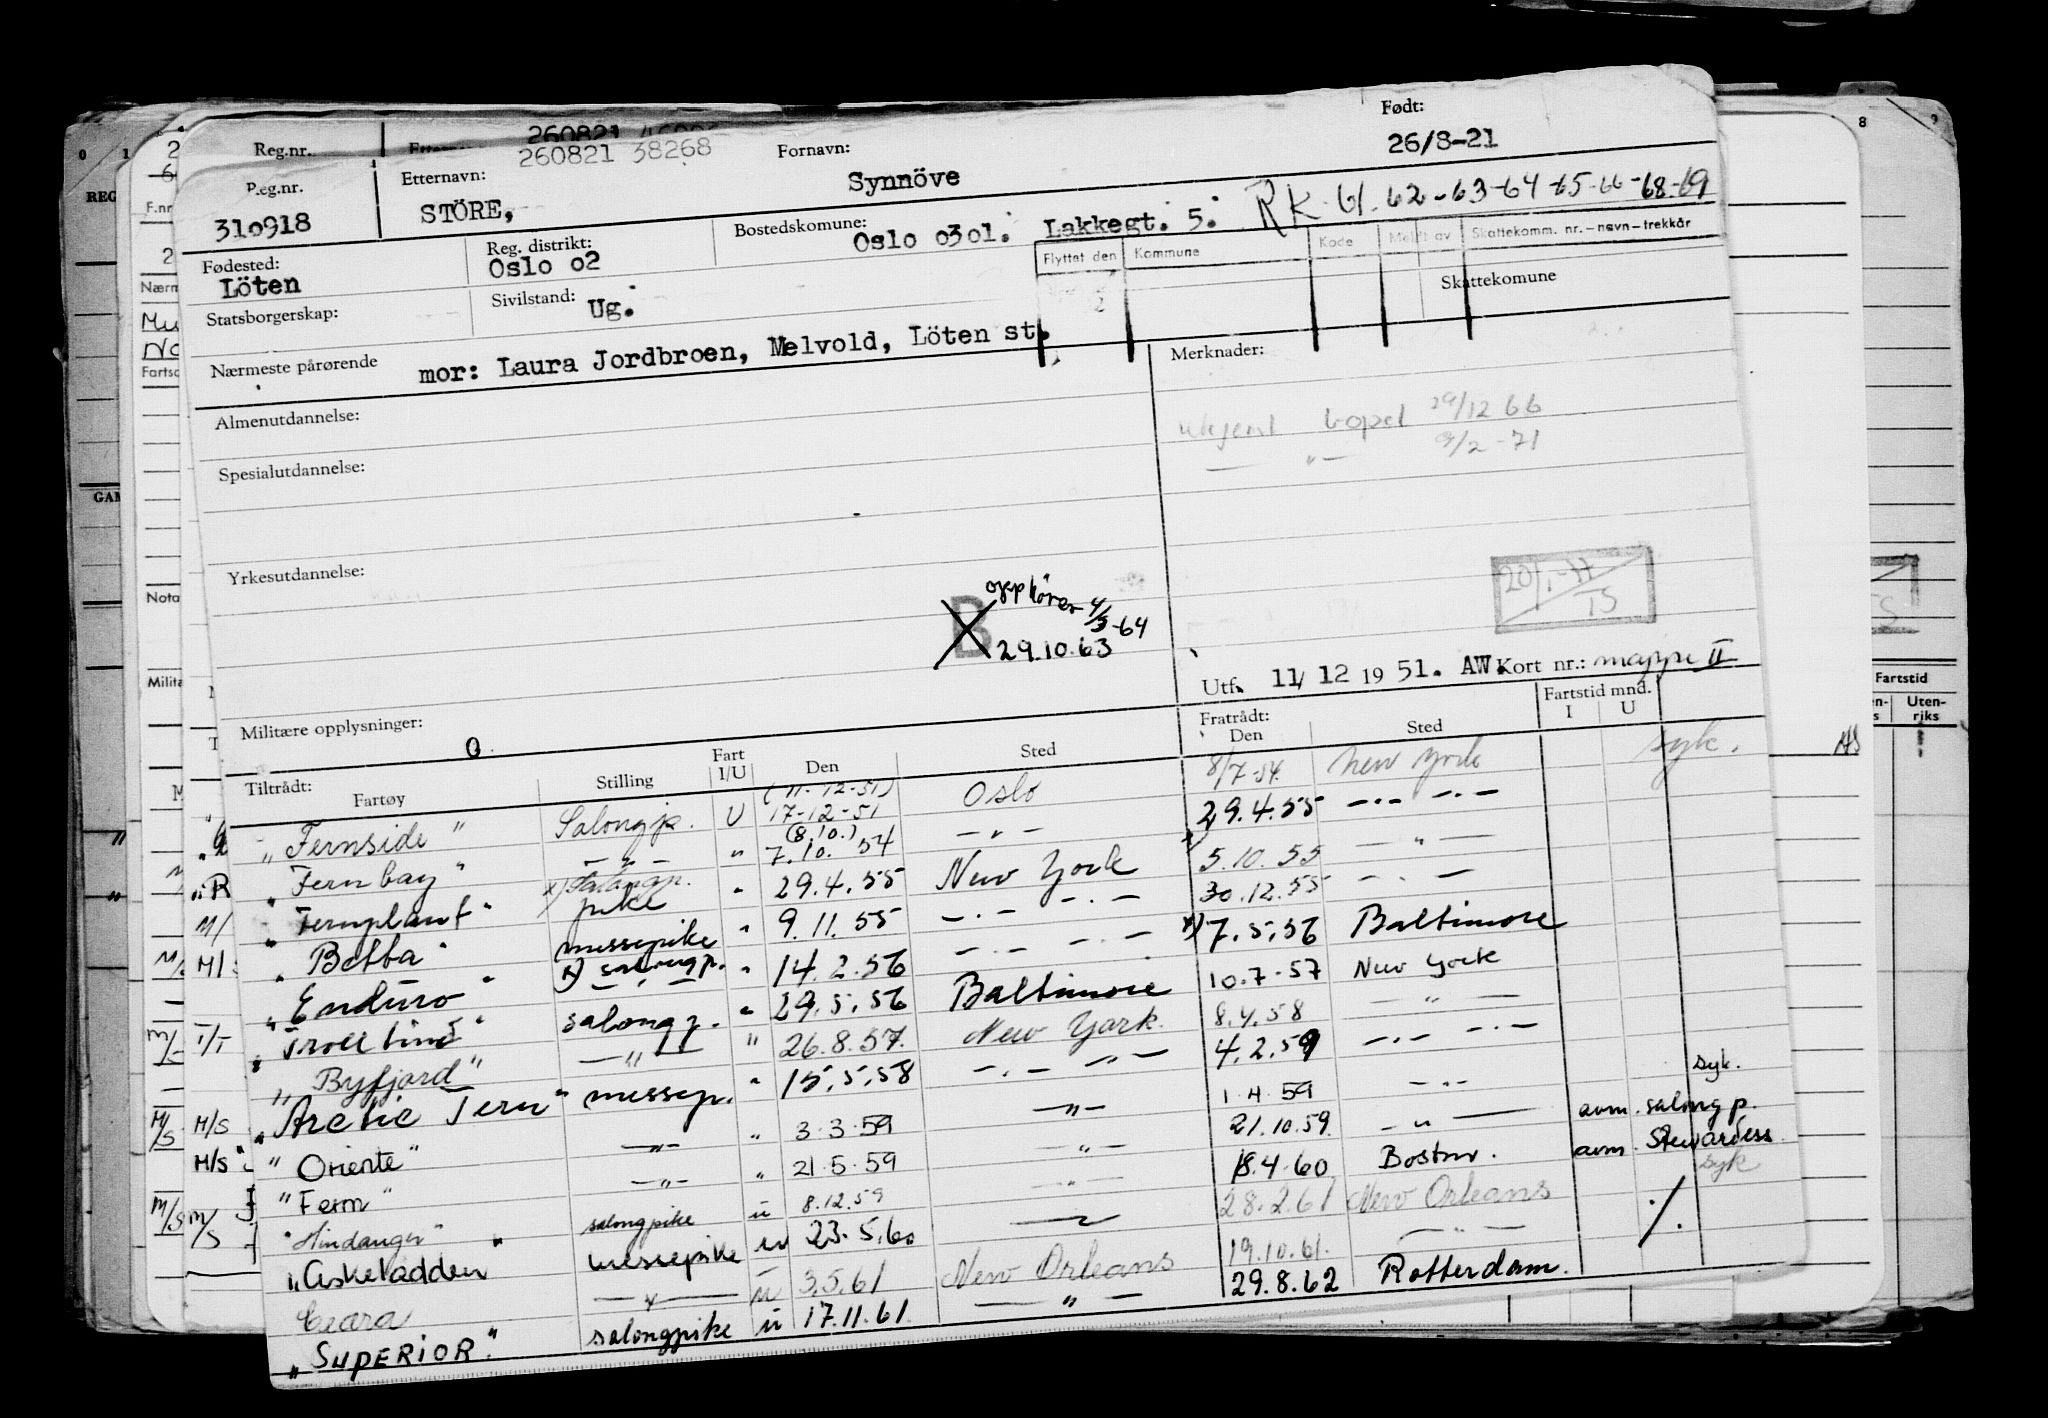 260821
Reg.nr.
260821 38268
Født:
26/8-21
P.eg.nr.
310918
Etternavn:
STÖRE,
Fornavn:
Synnöve
Fødested:
Löten
Reg. distrikt:
Oslo 02
Bostedskomune:
Oslo 0301. Lakkegt. 5.
RK 61-62-63-64-65-66-68-69
Flyttet den Kommune Kode Meldt av Skattekomm. nr.–navn–trekkår
Statsborgerskap:
Sivilstand:
Ug.
Skattekomune
Nærmeste pårørende
mor: Laura Jordbroen, Melvold, Löten st.
Merknader:
Almenutdannelse:
ukjent bopel 29/12 66
— " — 9/2-71
Spesialutdannelse:
Yrkesutdannelse:
B
opphører 4/3-64
29.10.63
20/1-77
TS
Utf. 11/12 1951. AW. Kort nr.: mappe II
Militære opplysninger:
0
Tiltrådt: Fartøy Stilling Fart I/U Den Sted Fratrådt: Den Sted Fartstid mnd. I U
"Fernside" Salongp. U (11-12-51) 17-12-51 Oslo 8/7-54 New York syk.
"Fernbay" — " — " (8.10.) 7.10.54 — " — 29.4.55 — " — " —
"Fernplant" x) Salongp. pike " 29.4.55 New York x) 5.10.55 — " —
"Betta" messepike " 9.11.55 — " — " — 30.12.55 — " —
"Enduro" x) salongp. " 14.2.56 — " — " — x) 7.5.56 Baltimore
"Trolltind" — " — " 29.5.56 Baltimore 10.7-57 New York
"Byfjord" salongp. " 26.8.57. New York. 8.4.58 — " —
"Arctic Tern" — " — " 15.5.58 — " — " — 4.2.59 — " —
"Oriente" messep. " 3.3.59 — " — 1.4.59 — " — syk.
"Fern" — " — " 21.5.59 — " — 21.10.59. — " — avm. salongp.
"Hindanger" — " — u 8.12.59 — " — 18.4.60 Boston. avm. Stewardess
"Askeladden" salongpike u 23.5.60 — " — 28.2.61 New Orleans syk
Ceara messepike u 3.5.61 New Orleans 19.10.61. — " —
"SUPERIOR" salongpike u 17.11.61. — " — 29.8.62 Rotterdam.
F.nr
Nota
Milita
Fartstid
Uten-
riks
M/S
T/T
M/S
M/S
M/S